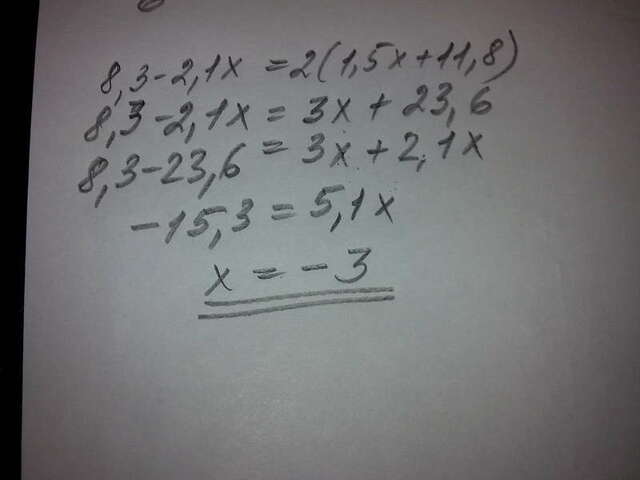 8,3-2,1x=2(1,5x+11,8)
8,3-2,1x=3x+23,6
8,3-23,6=3x+2,1x
-15,3=5,1x
x=-3